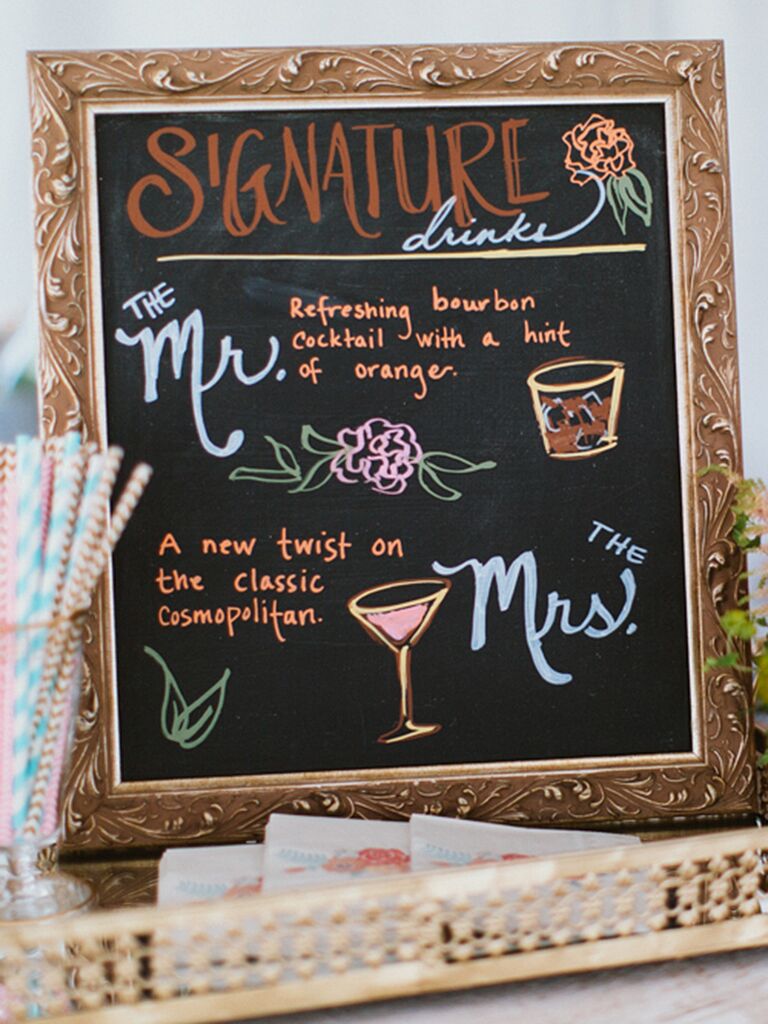 SIGNATURE
drinks
THE
Mr.
Refreshing bourbon
Cocktail with a hint
of oranger.
A new twist on
the classic
Cosmopolitan.
THE
Mrs.